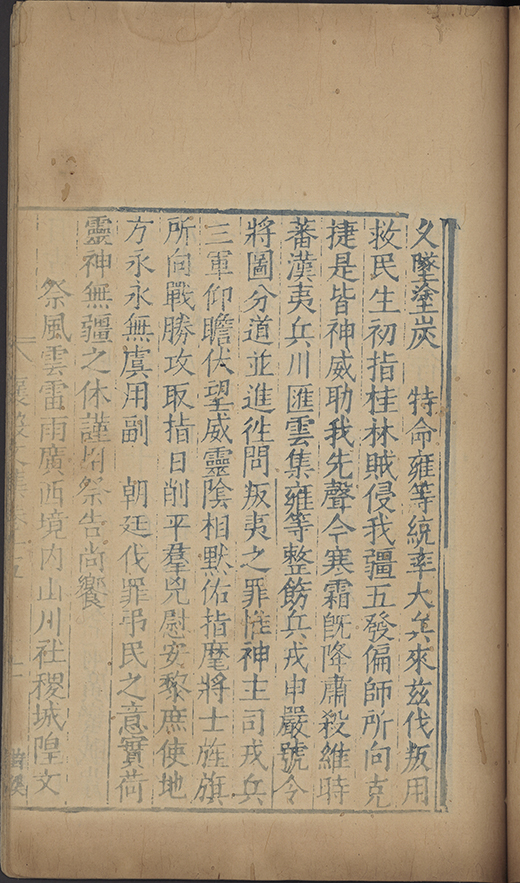 久墜塗炭　特命雍等統率大兵來茲伐叛用
救民生初指桂林賊侵我疆五發偏師所向克
捷是皆神威助我先聲今寒霜旣降肅殺維時
蕃漢夷兵川匯雲集雍等整飭兵戎申嚴號令
將圖分道並進徃問叛夷之罪惟神主司戎兵
三軍仰瞻伏望威靈隂相默佑指麾將士旌旗
所向戰勝攻取指日削平羣兇慰安黎庶使地
方永永無虞用副　朝廷伐罪弔民之意實荷
靈神無疆之休謹以祭告尚饗
祭風雲雷雨廣西境內山川社稷城隍文
襄毅文集卷十五